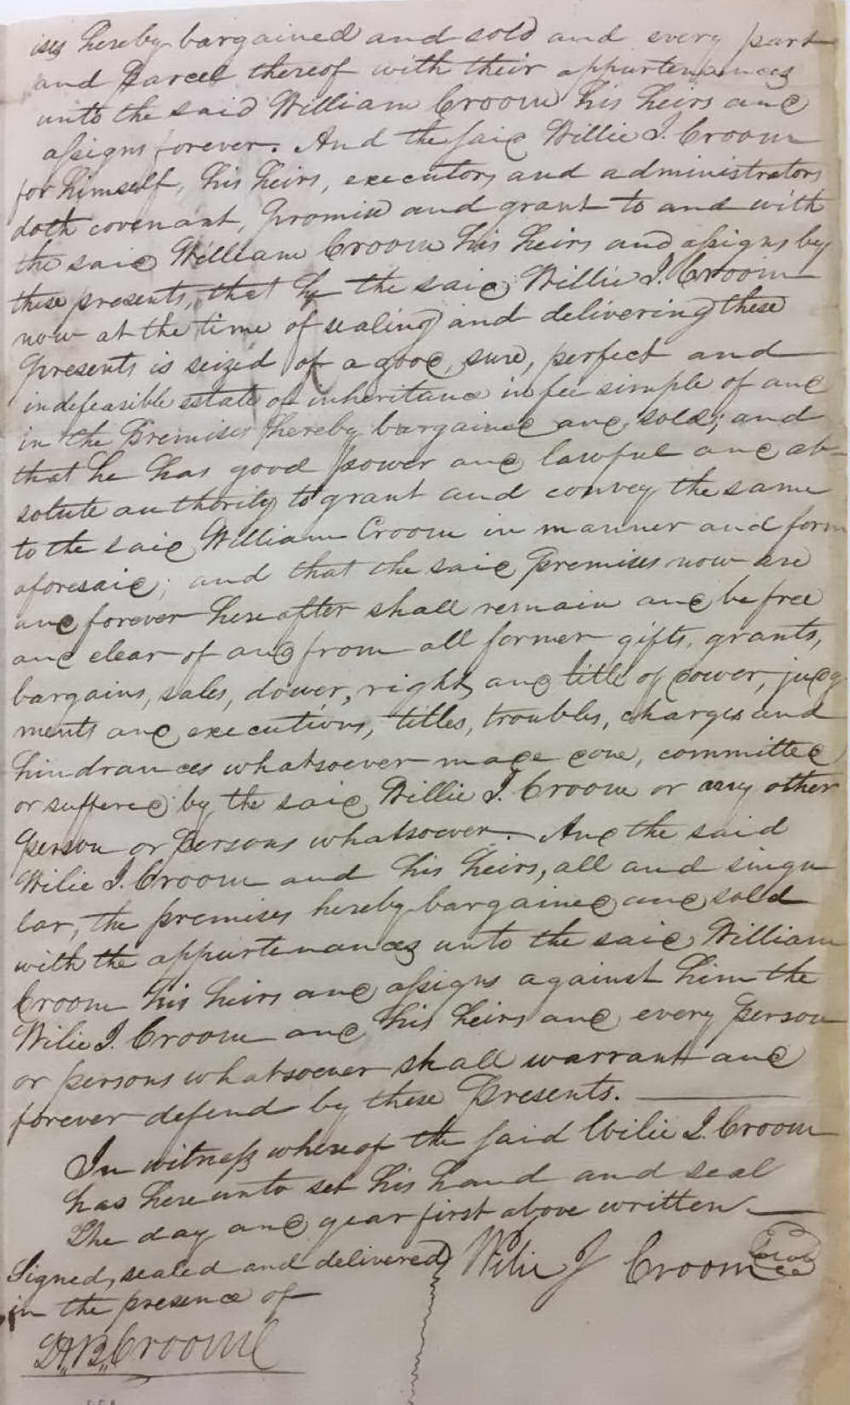 ises hereby bargained and sold and every part
and Parcel thereof with their appurtenances
unto the said William Croom his heirs and
assigns forever. And the said Willie J. Croom
for himself, his heirs, executors and administrators
doth covenant, promise and grant to and with
the said William Croom his heirs and assigns by
these presents, that he the said Willie J. Croom
now at the time of sealing and delivering these
presents is seized of a good, sure, perfect and
indefeasible estate of inheritance in fee simple of and
in the Premises hereby bargained and sold; and
that he has good power and lawful and ab-
solute authority to grant and convey the same
to the said William Croom in manner and form
aforesaid; and that the said Premises now are
and forever hereafter shall remain and be free
and clear of and from all former gifts, grants,
bargains, sales, dower, right and title of dower, judg
ments and executions, titles, troubles, charges and
hindrances whatsoever made done, committed
or suffered by the said Willie J. Croom or any other
person or persons whatsoever. And the said
Wilie J. Croom and his heirs, all and singu
lar, the premises hereby bargained and sold
with the appurtenances unto the said William
Croom his heirs and assigns against him the
Wilie J. Croom and his heirs and every person
or persons whatsoever shall warrant and
forever defend by these Presents.
In witness whereof the said Wilie J. Croom
has hereunto set his hand and seal
The day and year first above written
Signed, sealed and delivered Wilie J Croom
in the presence of
H. B. Croom